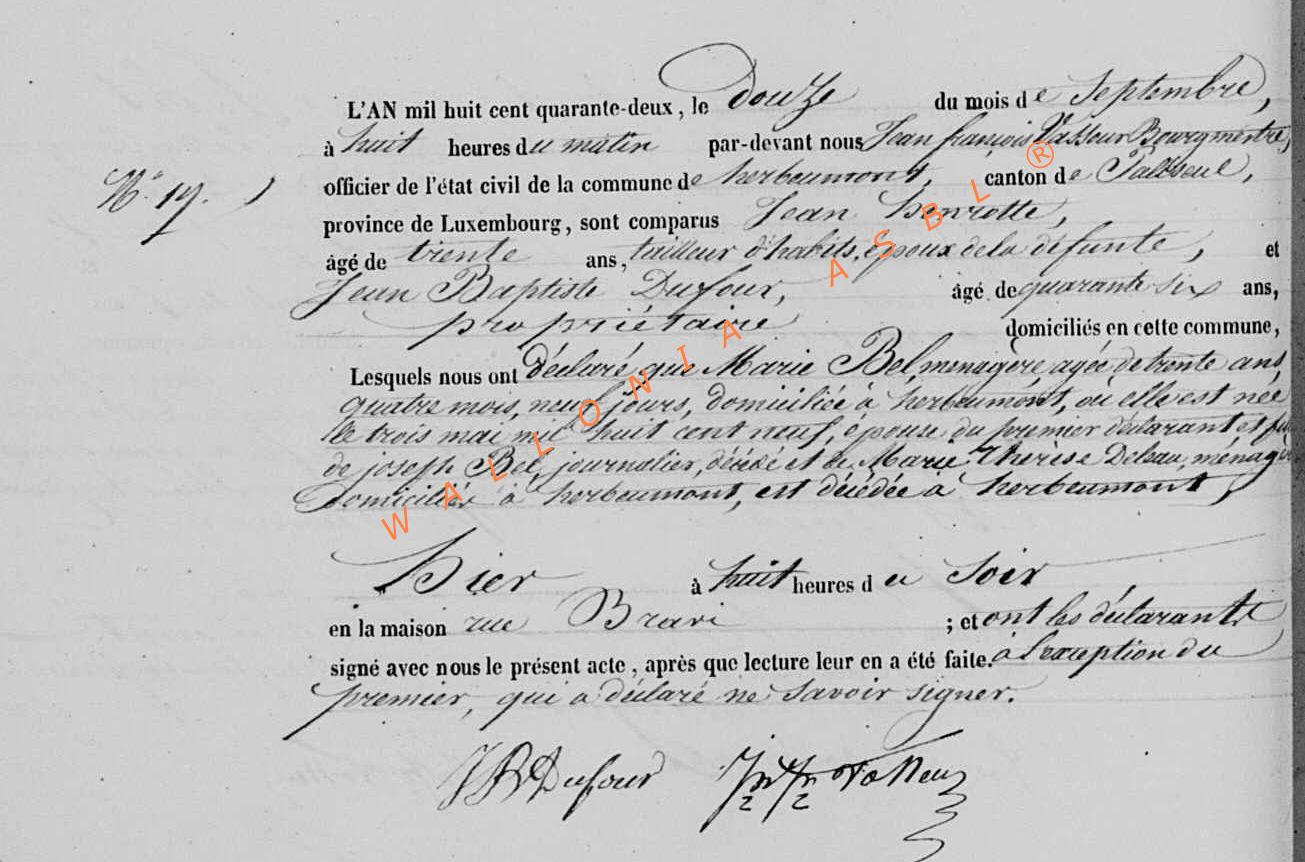 L'AN mil huit cent quarante-deux, le douze du mois de Septembre,
à huit heures du matin par-devant nous Jean françois Vasseur Bourgmestre,
officier de l'état civil de la commune de herbeumont, canton de Paliseul,
N° 17.
province de Luxembourg, sont comparus Jean henrotte,
âgé de trente ans, tailleur d'habits, époux de la défunte, et
Jean Baptiste Dufour, âgé de quarante six ans,
propriétaire domiciliés en cette commune,
Lesquels nous ont déclaré que Marie Bel menagère agée de trente ans
quatre mois, neuf jours, domiciliée à herbeumont, où elle est née
le trois mai mil huit cent neuf, épouse du premier déclarant et
de joseph Bel, journalier, décédé et de Marie Thérèse Deleau, ménagère
domiciliée à herbeumont, est décédée à herbeumont,
hier à huit heures du Soir
en la maison rue Bravi ; et ont les déclarants
signé avec nous le présent acte, après que lecture leur en a été faite. à l'exception du
premier, qui a déclaré ne Savoir signer.
JB Dufour
WALLONIA ASBL ®